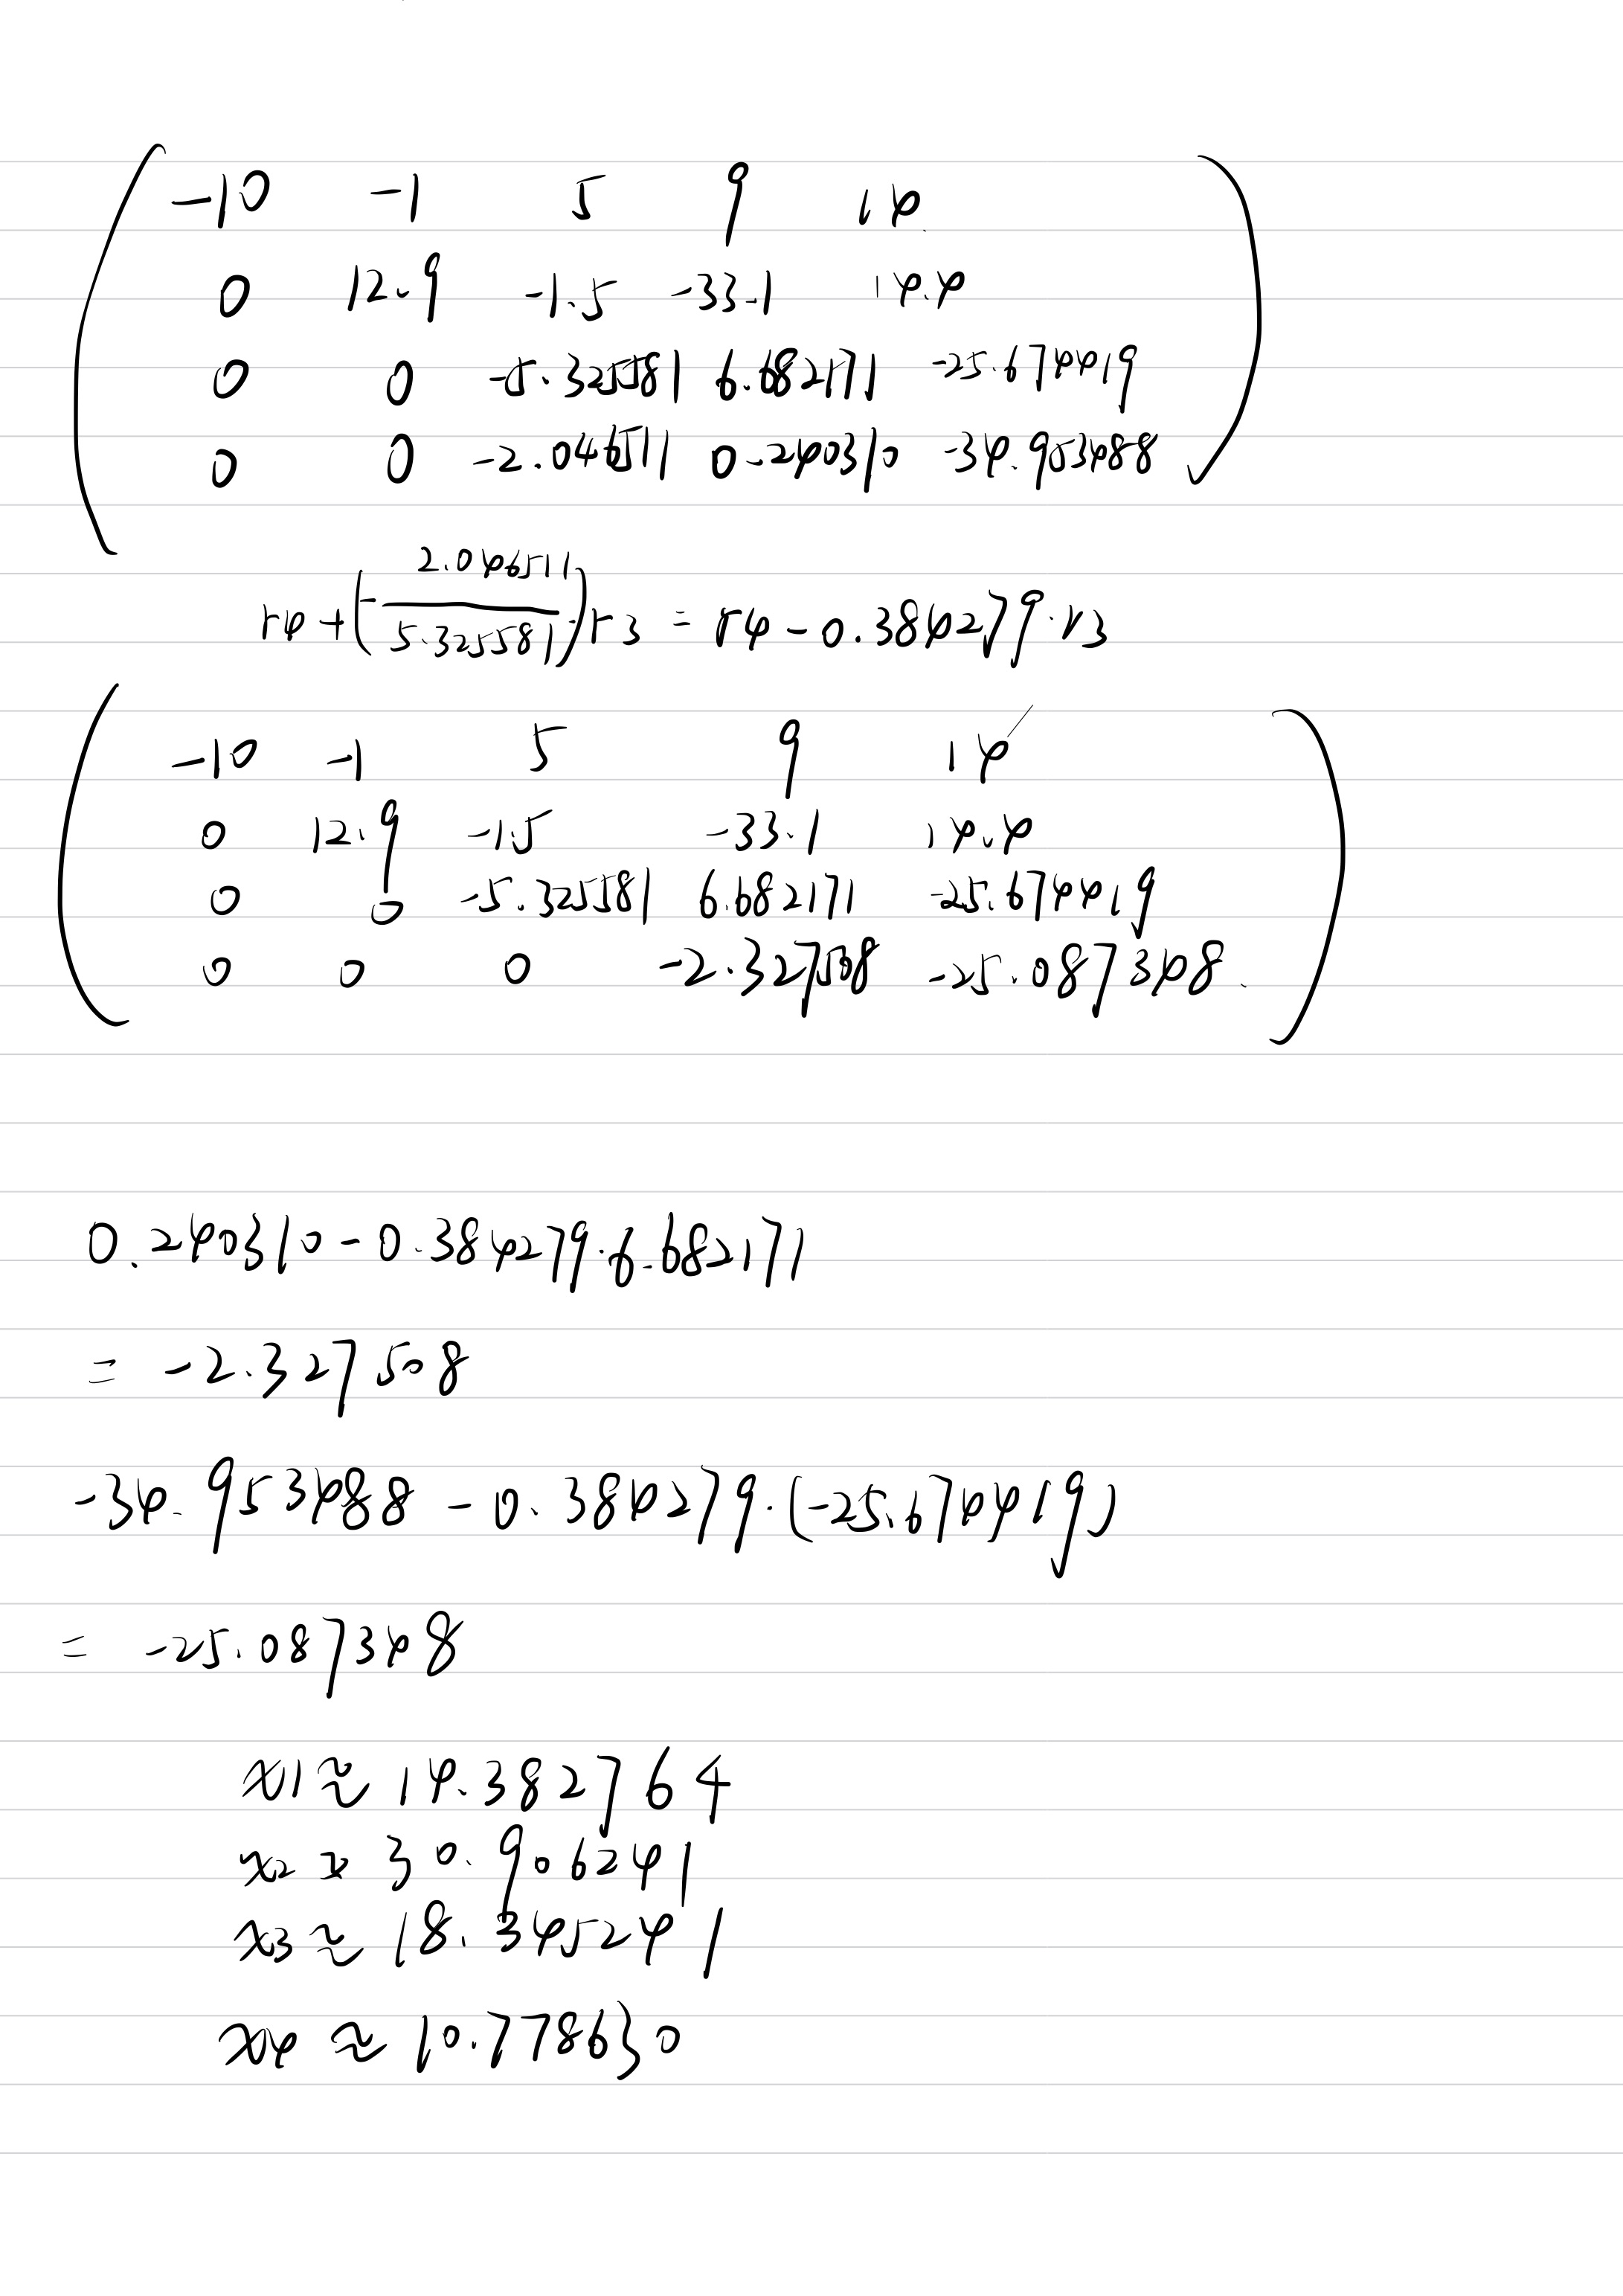 -10 -1 5 9 14
0 12.9 -1.5 -33.1 14.4
0 0 -5.325581 6.682171 -25.674419
0 0 -2.046511 0.240310 -34.953488
r4 + (- 2.046511 / 5.325581) r3 = r4 - 0.384279·r3
-10 -1 5 9 14
0 12.9 -1.5 -33.1 14.4
0 0 -5.325581 6.682171 -25.674419
0 0 0 -2.327508 -25.087348
0.240310 - 0.384279·6.682171
= -2.327508
-34.953488 - 0.384279·(-25.674419)
= -25.087348
x1 ≈ 14.382764
x2 ≈ 30.906241
x3 ≈ 18.345241
x4 ≈ 10.778630